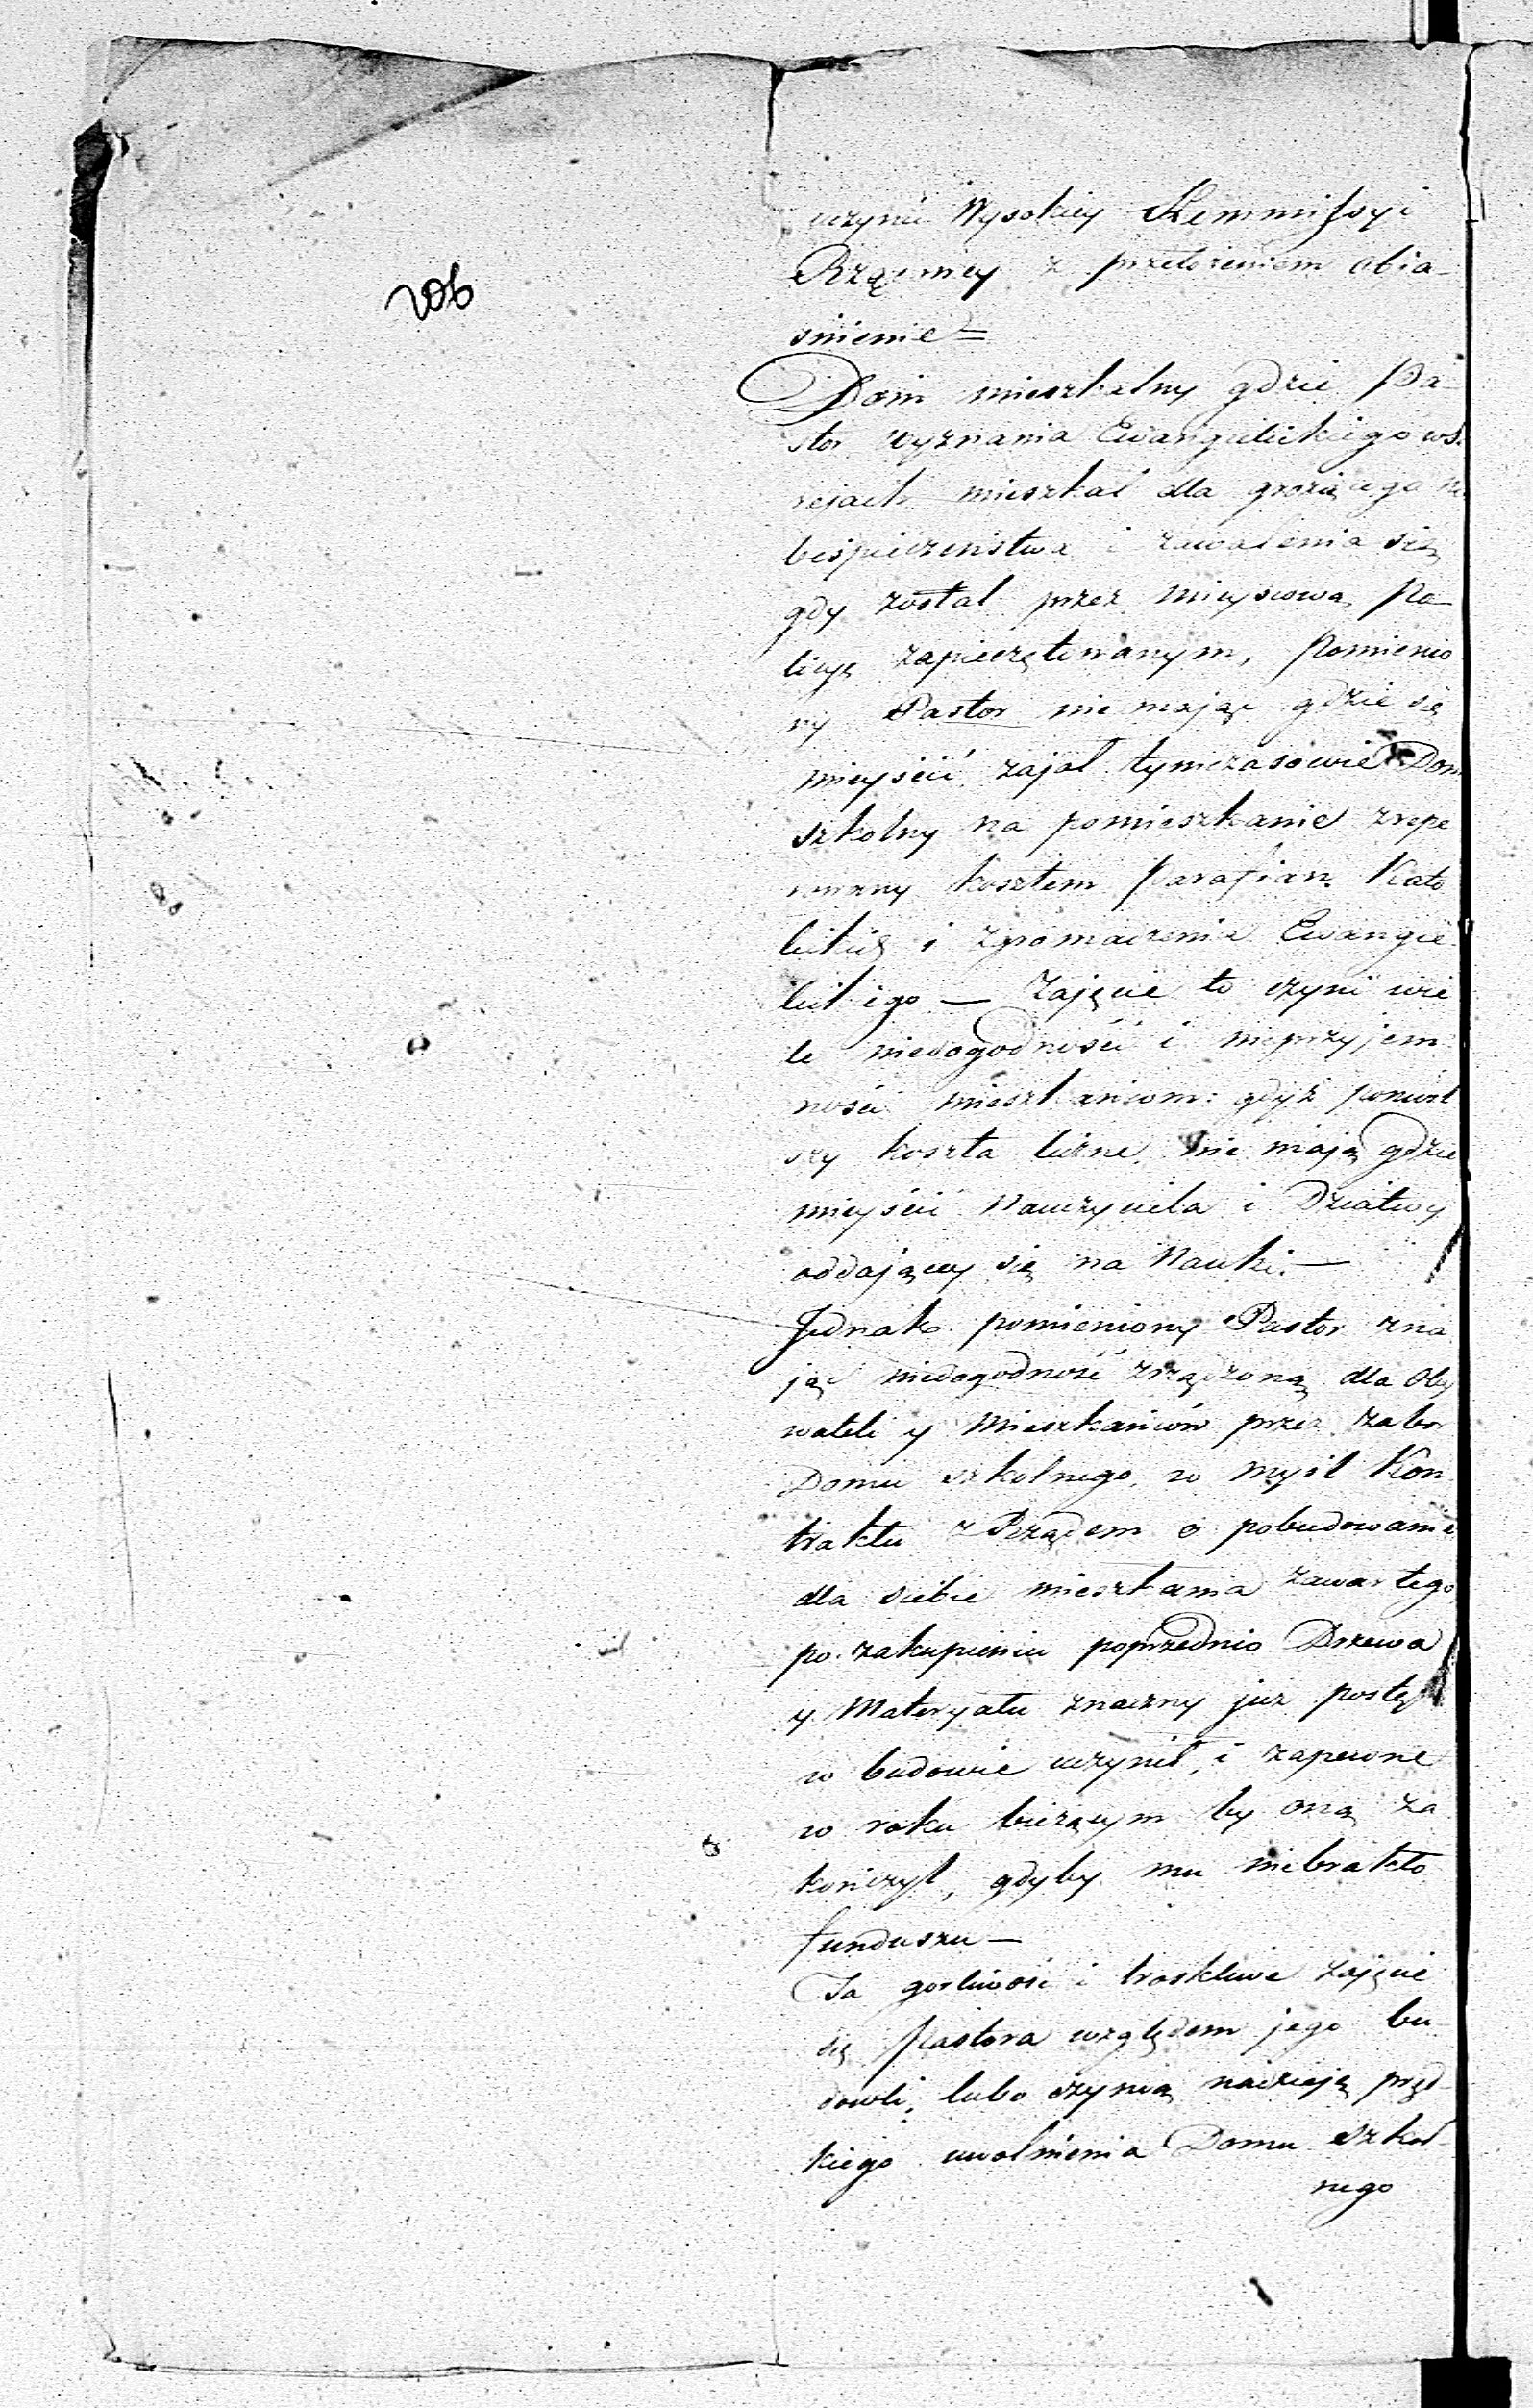 206
uczynić Wysokiey Kommissyi
Rządowey z przełożeniem obja-
śnienie=
Dom mieszkalny gdzie Pa-
stor wyznania Ewangielickiego w
mieszkał dla grożącego ni
bespieczeństwa i zawalenia się
gdy został przez mieyscową Po-
licyę zapieczętowanym, Pomienio
ny Pastor nie mając gdzie się
mieyścić zajął tymczasowie Dom
szkolny na pomieszkanie zrepe
rowany kosztem Parafian Kato
lickich i zgromadzenia Ewangie
lickiego — Zajęcie to czyni wie
le niedogodności i nieprzyjem
ności mieszkańcom: gdyż poniósł
szy koszta liczne, nie mają gdzie
mieyścić Nauczyciela i Dziatwy
oddającey się na Nauki. —
Jednak pomieniony Pastor zna
jąc niedogodność zrządzoną dla Oby
wateli y Mieszkańców przez zabor
Domu szkolnego, w myśl Kon
traktu z Rządem o pobudowanie
dla siebie mieszkania zawartego
po zakupieniu poprzednio Drzewa
y Materyału znaczny już postęp
w budowie uczynił, i zapewne
w roku bieżącym by oną za
kończył, gdyby mu niebrakło
funduszu —
Ta gorliwość i troskliwe zajęcie
się Pastora względem jego bu
dowli, lubo czynią nadzieję pręd-
kiego uwolnienia Domu szkol-
nego